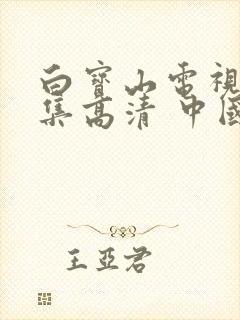 白寶山電視
集高清 中國
王亞君